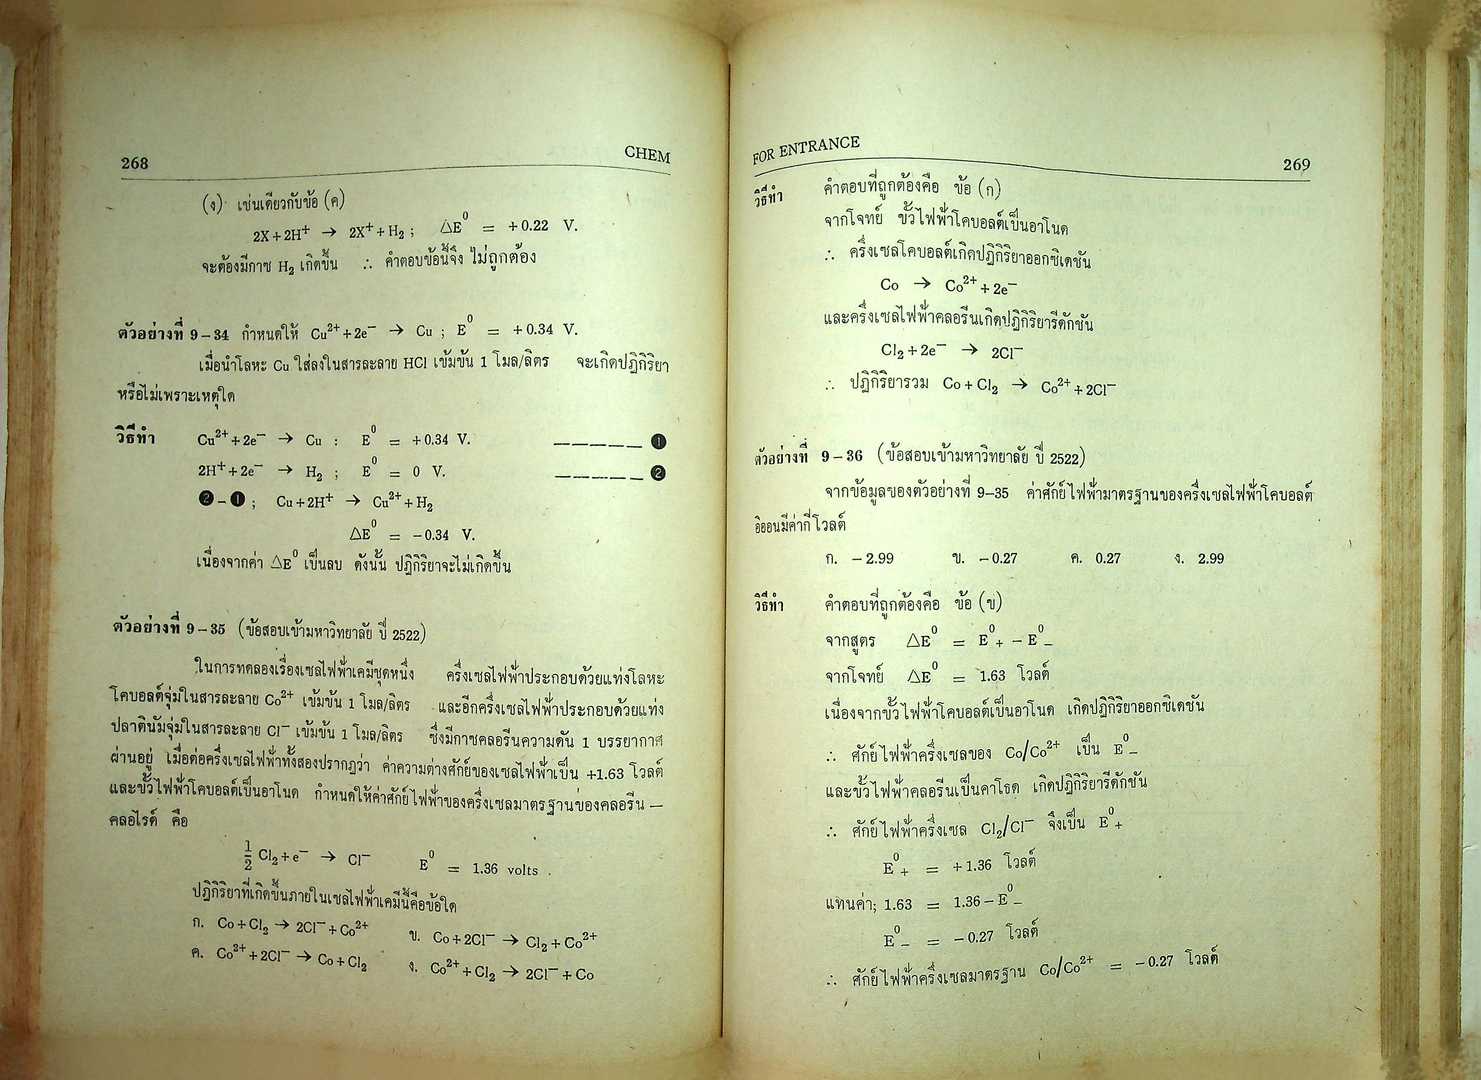 268
CHEM
(ง) เช่นเดียวกับข้อ (ค)
2X + 2H⁺ → 2X⁺ + H₂ ; △E⁰ = +0.22 V.
จะต้องมีกาซ H₂ เกิดขึ้น ∴ คำตอบข้อนี้จึง ไม่ถูกต้อง
ตัวอย่างที่ 9-34 กำหนดให้ Cu²⁺ + 2e⁻ → Cu ; E⁰ = +0.34 V.
เมื่อนำโลหะ Cu ใส่ลงในสารละลาย HCl เข้มข้น 1 โมล/ลิตร จะเกิดปฏิกิริยา
หรือไม่เพราะเหตุใด
วิธีทำ Cu²⁺ + 2e⁻ → Cu : E⁰ = +0.34 V. ————— ❶
2H⁺ + 2e⁻ → H₂ ; E⁰ = 0 V. ————— ❷
❷ - ❶ ; Cu + 2H⁺ → Cu²⁺ + H₂
△E⁰ = -0.34 V.
เนื่องจากค่า △E⁰ เป็นลบ ดังนั้น ปฏิกิริยาจะไม่เกิดขึ้น
ตัวอย่างที่ 9-35 (ข้อสอบเข้ามหาวิทยาลัย ปี 2522)
ในการทดลองเรื่องเซลไฟฟ้าเคมีชุดหนึ่ง ครึ่งเซลไฟฟ้าประกอบด้วยแท่งโลหะ
โคบอลต์จุ่มในสารละลาย Co²⁺ เข้มข้น 1 โมล/ลิตร และอีกครึ่งเซลไฟฟ้าประกอบด้วยแท่ง
ปลาตินัมจุ่มในสารละลาย Cl⁻ เข้มข้น 1 โมล/ลิตร ซึ่งมีกาซคลอรีนความดัน 1 บรรยากาศ
ผ่านอยู่ เมื่อต่อครึ่งเซลไฟฟ้าทั้งสองปรากฏว่า ค่าความต่างศักย์ของเซลไฟฟ้าเป็น +1.63 โวลต์
และขั้วไฟฟ้าโคบอลต์เป็นอาโนด กำหนดให้ค่าศักย์ไฟฟ้าของครึ่งเซลมาตรฐานของคลอรีน –
คลอไรด์ คือ
½ Cl₂ + e⁻ → Cl⁻ E⁰ = 1.36 volts .
ปฏิกิริยาที่เกิดขึ้นภายในเซลไฟฟ้าเคมีนี้คือข้อใด
ก. Co + Cl₂ → 2Cl⁻ + Co²⁺ ข. Co + 2Cl⁻ → Cl₂ + Co²⁺
ค. Co²⁺ + 2Cl⁻ → Co + Cl₂ ง. Co²⁺ + Cl₂ → 2Cl⁻ + Co
FOR ENTRANCE
269
วิธีทำ คำตอบที่ถูกต้องคือ ข้อ (ก)
จากโจทย์ ขั้วไฟฟ้าโคบอลต์เป็นอาโนด
∴ ครึ่งเซลโคบอลต์เกิดปฏิกิริยาออกซิเดชัน
Co → Co²⁺ + 2e⁻
และครึ่งเซลไฟฟ้าคลอรีนเกิดปฏิกิริยารีดักชัน
Cl₂ + 2e⁻ → 2Cl⁻
∴ ปฏิกิริยารวม Co + Cl₂ → Co²⁺ + 2Cl⁻
ตัวอย่างที่ 9-36 (ข้อสอบเข้ามหาวิทยาลัย ปี 2522)
จากข้อมูลของตัวอย่างที่ 9-35 ค่าศักย์ไฟฟ้ามาตรฐานของครึ่งเซลไฟฟ้าโคบอลต์
อิออนมีค่ากี่โวลต์
ก. -2.99 ข. -0.27 ค. 0.27 ง. 2.99
วิธีทำ คำตอบที่ถูกต้องคือ ข้อ (ข)
จากสูตร △E⁰ = E⁰₊ - E⁰₋
จากโจทย์ △E⁰ = 1.63 โวลต์
เนื่องจากขั้วไฟฟ้าโคบอลต์เป็นอาโนด เกิดปฏิกิริยาออกซิเดชัน
∴ ศักย์ไฟฟ้าครึ่งเซลของ Co/Co²⁺ เป็น E⁰₋
และขั้วไฟฟ้าคลอรีนเป็นคาโธด เกิดปฏิกิริยารีดักชัน
∴ ศักย์ไฟฟ้าครึ่งเซล Cl₂/Cl⁻ จึงเป็น E⁰₊
E⁰₊ = +1.36 โวลต์
แทนค่า; 1.63 = 1.36 - E⁰₋
E⁰₋ = -0.27 โวลต์
∴ ศักย์ไฟฟ้าครึ่งเซลมาตรฐาน Co/Co²⁺ = -0.27 โวลต์